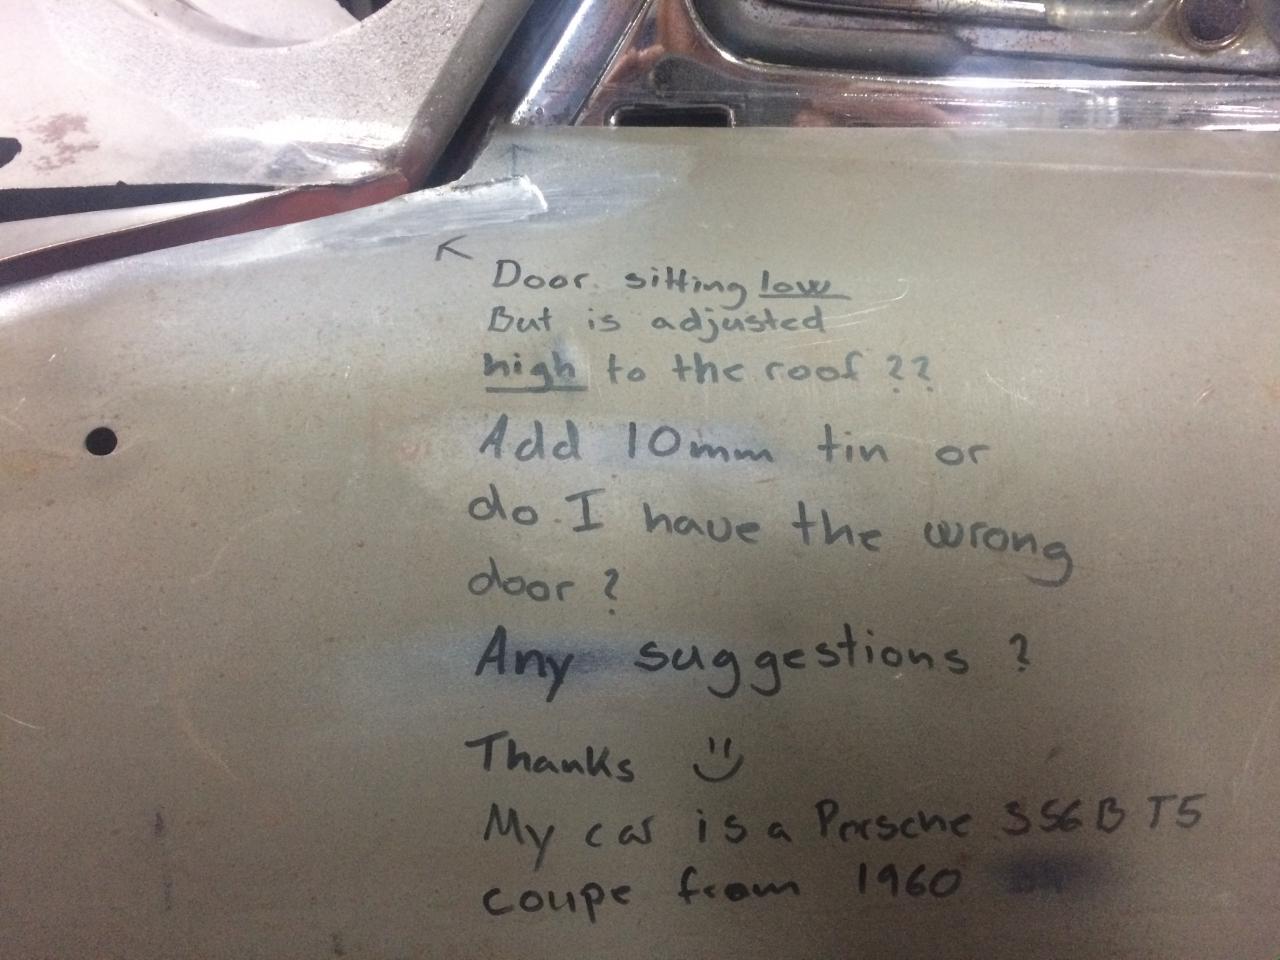 Door sitting low
But is adjusted
high to the roof ??
Add 10mm tin or
do I have the wrong
door ?
Any suggestions ?
Thanks
My car is a Porsche 356 B T5
coupe from 1960